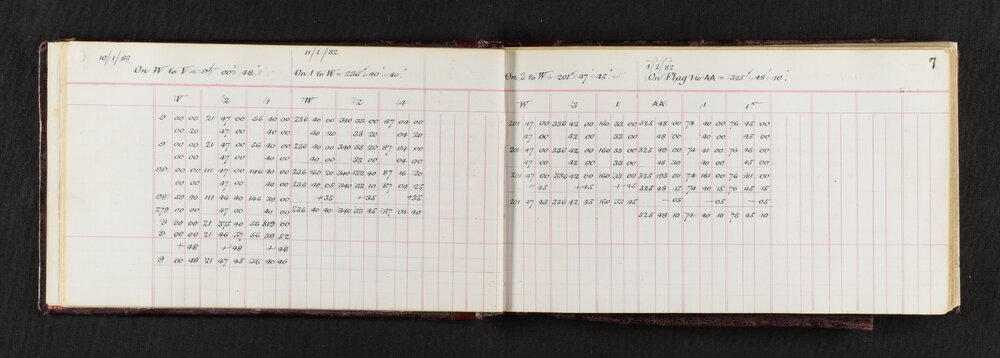 10/1/82
On W to V = 9° 00' 48"
V 2 1
9 00 00 21 47 00 56 40 00
00 20 47 00 40 00
9 00 00 21 47 00 56 40 00
00 00 47 00 40 00
99 00 00 111 47 00 146 40 00
00 00 47 00 40 00
98 59 20 111 46 40 146 39 00
279 00 00 47 00 40 00
9 00 00 21 56
9 00 00 21 46 57 56 39 52
+48 +48 +48
9 00 48 21 47 45 56 40 40
11/1/82
On 1 to W = 236° 40' 40"
W 2 4
236 40 00 340 33 00 87 04 00
40 20 33 20 04 20
236 40 00 340 33 20 87 04 00
40 00 33 00 04 00
236 160 20 340 132 40 87 16 120
236 40 05 340 33 10 87 04 25
+35 +35 +35
236 40 40 340 33 45 87 04 40
On 2 to W = 201° 47' 45"
W 3 1
201 47 00 336 42 00 160 33 00
47 00 42 00 33 00
201 47 00 336 42 00 160 33 00
47 00 42 00 33 00
201 47 00 336 42 00 160 33 00
+45 +45 +45
201 47 45 336 42 45 160 33 45
4/2/82
7
On Flag 1 to AA = 325° 48' 10"
AA 1 1st
325 48 00 74 40 00 76 45 00
48 00 40 00 45 00
325 49 00 74 41 00 76 46 00
48 30 40 00 45 00
325 193 00 74 161 00 76 181 00
325 48 15 74 40 15 76 45 15
-05 -05 -05
325 48 10 74 40 10 76 45 10